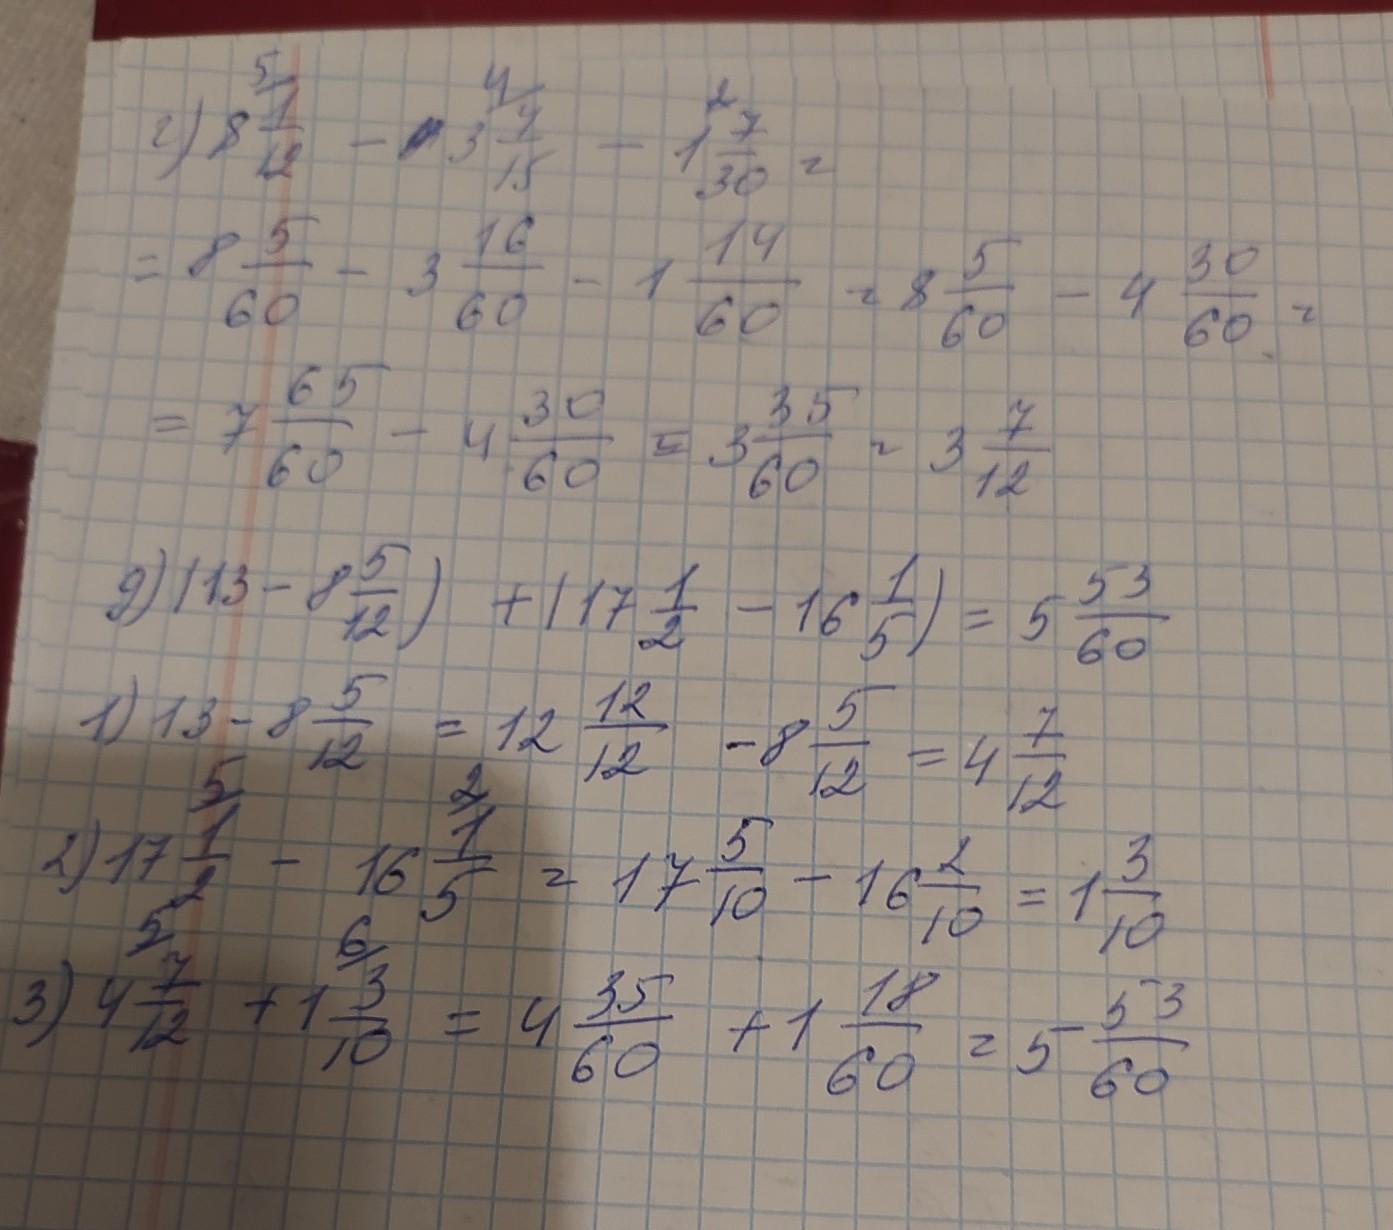 г) 8 5/ 1/12 - 3 4/ 4/15 - 1 2 7/30 =
= 8 5/60 - 3 16/60 - 1 14/60 = 8 5/60 - 4 30/60 =
= 7 65/60 - 4 30/60 = 3 35/60 = 3 7/12
д) (13 - 8 5/12) + (17 1/2 - 16 1/5) = 5 53/60
1) 13 - 8 5/12 = 12 12/12 - 8 5/12 = 4 7/12
2) 17 5/ 1/2 - 16 2/ 1/5 = 17 5/10 - 16 2/10 = 1 3/10
3) 4 5/ 7/12 + 1 6/ 3/10 = 4 35/60 + 1 18/60 = 5 53/60